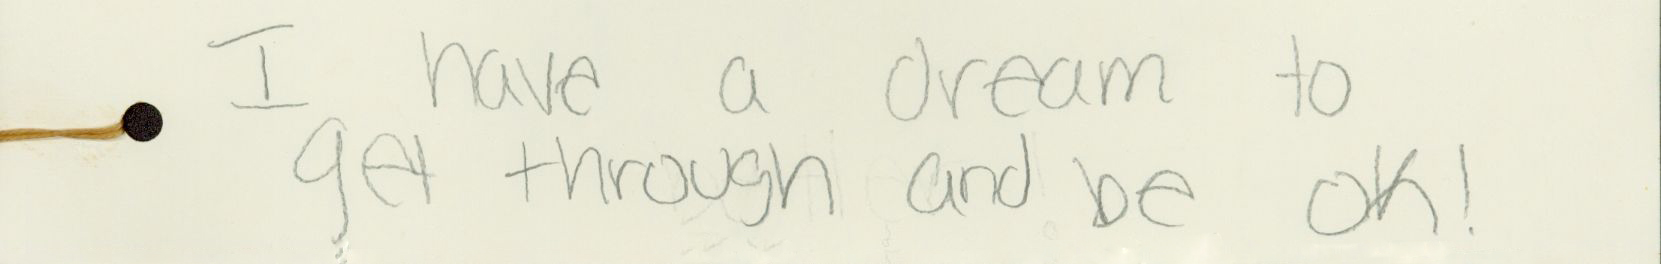 I have a dream to
get through and be ok!